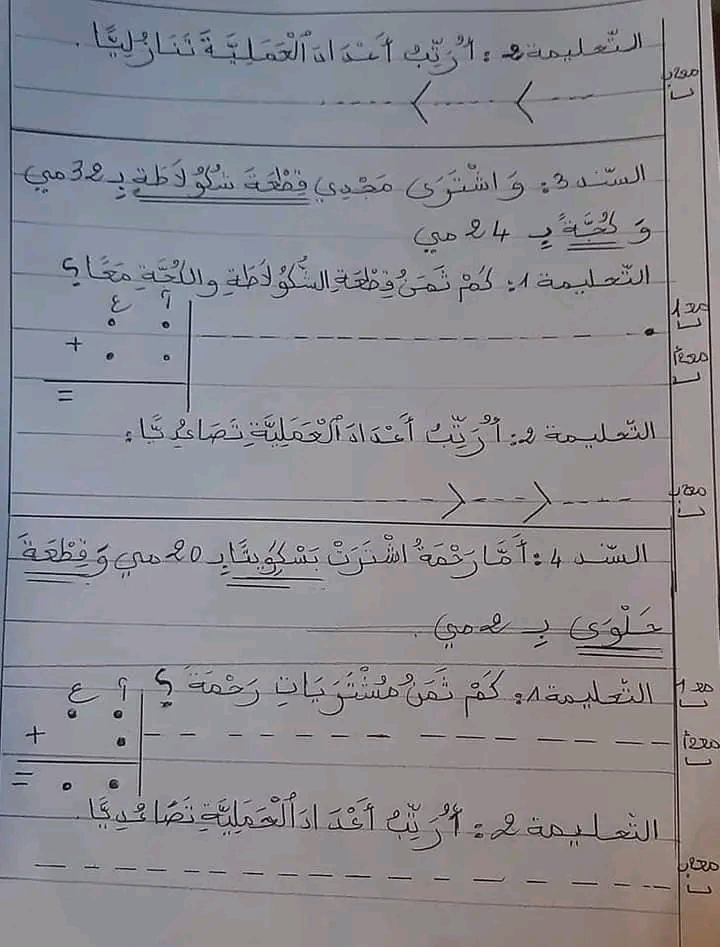 التّعليمة 2: أُرَتِّبُ أَعْدَادَ ٱلْعَمَلِيَّةَ تَنَازُلِيًّا.
معب
السّند 3: وَ اشْتَرَى مَجْدِي قِطْعَةَ شُكُولَاطَةٍ بِـ 32 مي
وَ كُجَّةً بِـ 24 مي
التّعليمة 1: كَمْ ثَمَنُ قِطْعَةِ الشُّكُولَاطَةِ والكُجَّةِ مَعًا؟
أ ع
+
=
التّعليمة 2: أُرَتِّبُ أَعْدَادَ ٱلْعَمَلِيَّةِ تَصَاعُدِيًّا:
السّند 4: أَمَّا رَحْمَةُ اشْتَرَتْ بَسْكِوِيتًا بِـ 20 مي وَ قِطْعَةَ
حَلْوَى بِـ 2 مي.
التّعليمة 1: كَمْ ثَمَنُ مُشْتَرَيَاتِ رَحْمَةَ؟
أ ع
+
=
التّعليمة 2: أُرَتِّبُ أَعْدَادَ ٱلْعَمَلِيَّةِ تَصَاعُدِيًّا.